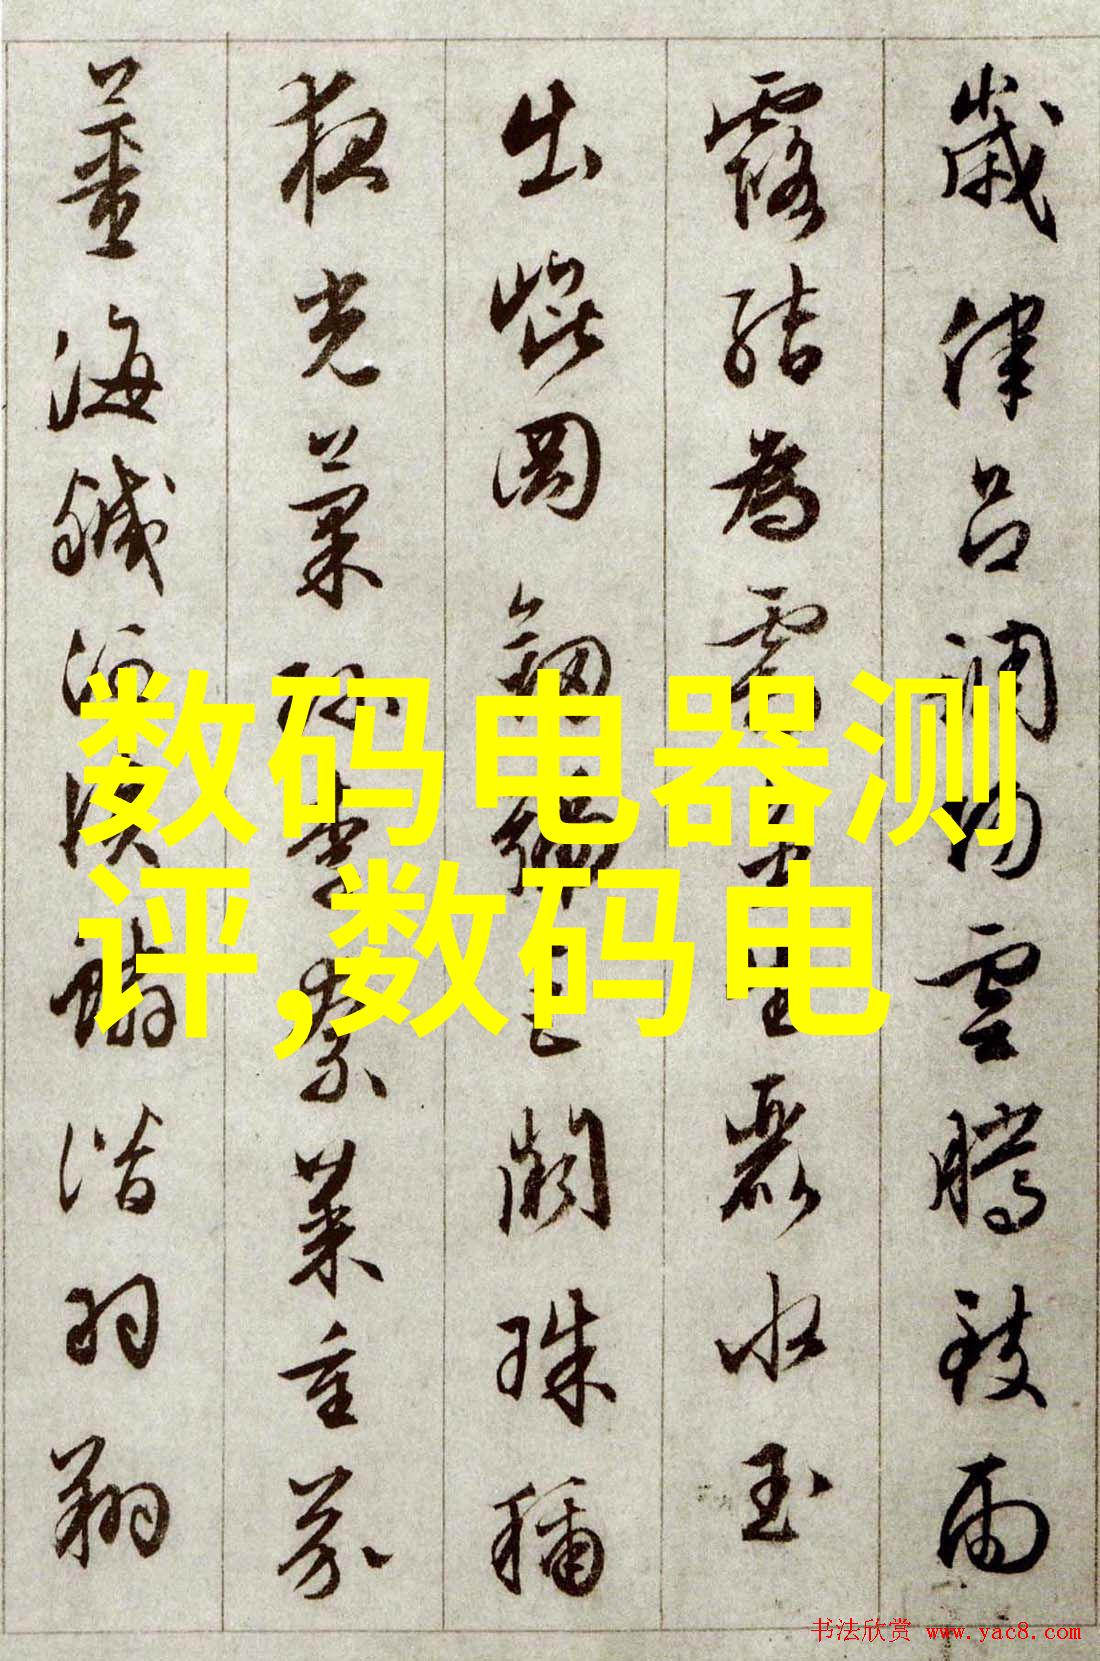 歲律吕調陽雲騰致雨
露結為霜金生麗水玉
出崐岡劔號巨闕珠稱
夜光菓珎李柰菜重芥
薑海鹹河淡鱗潛羽翔
数码电器测
评,数码电
书法欣赏 www.yac8.com